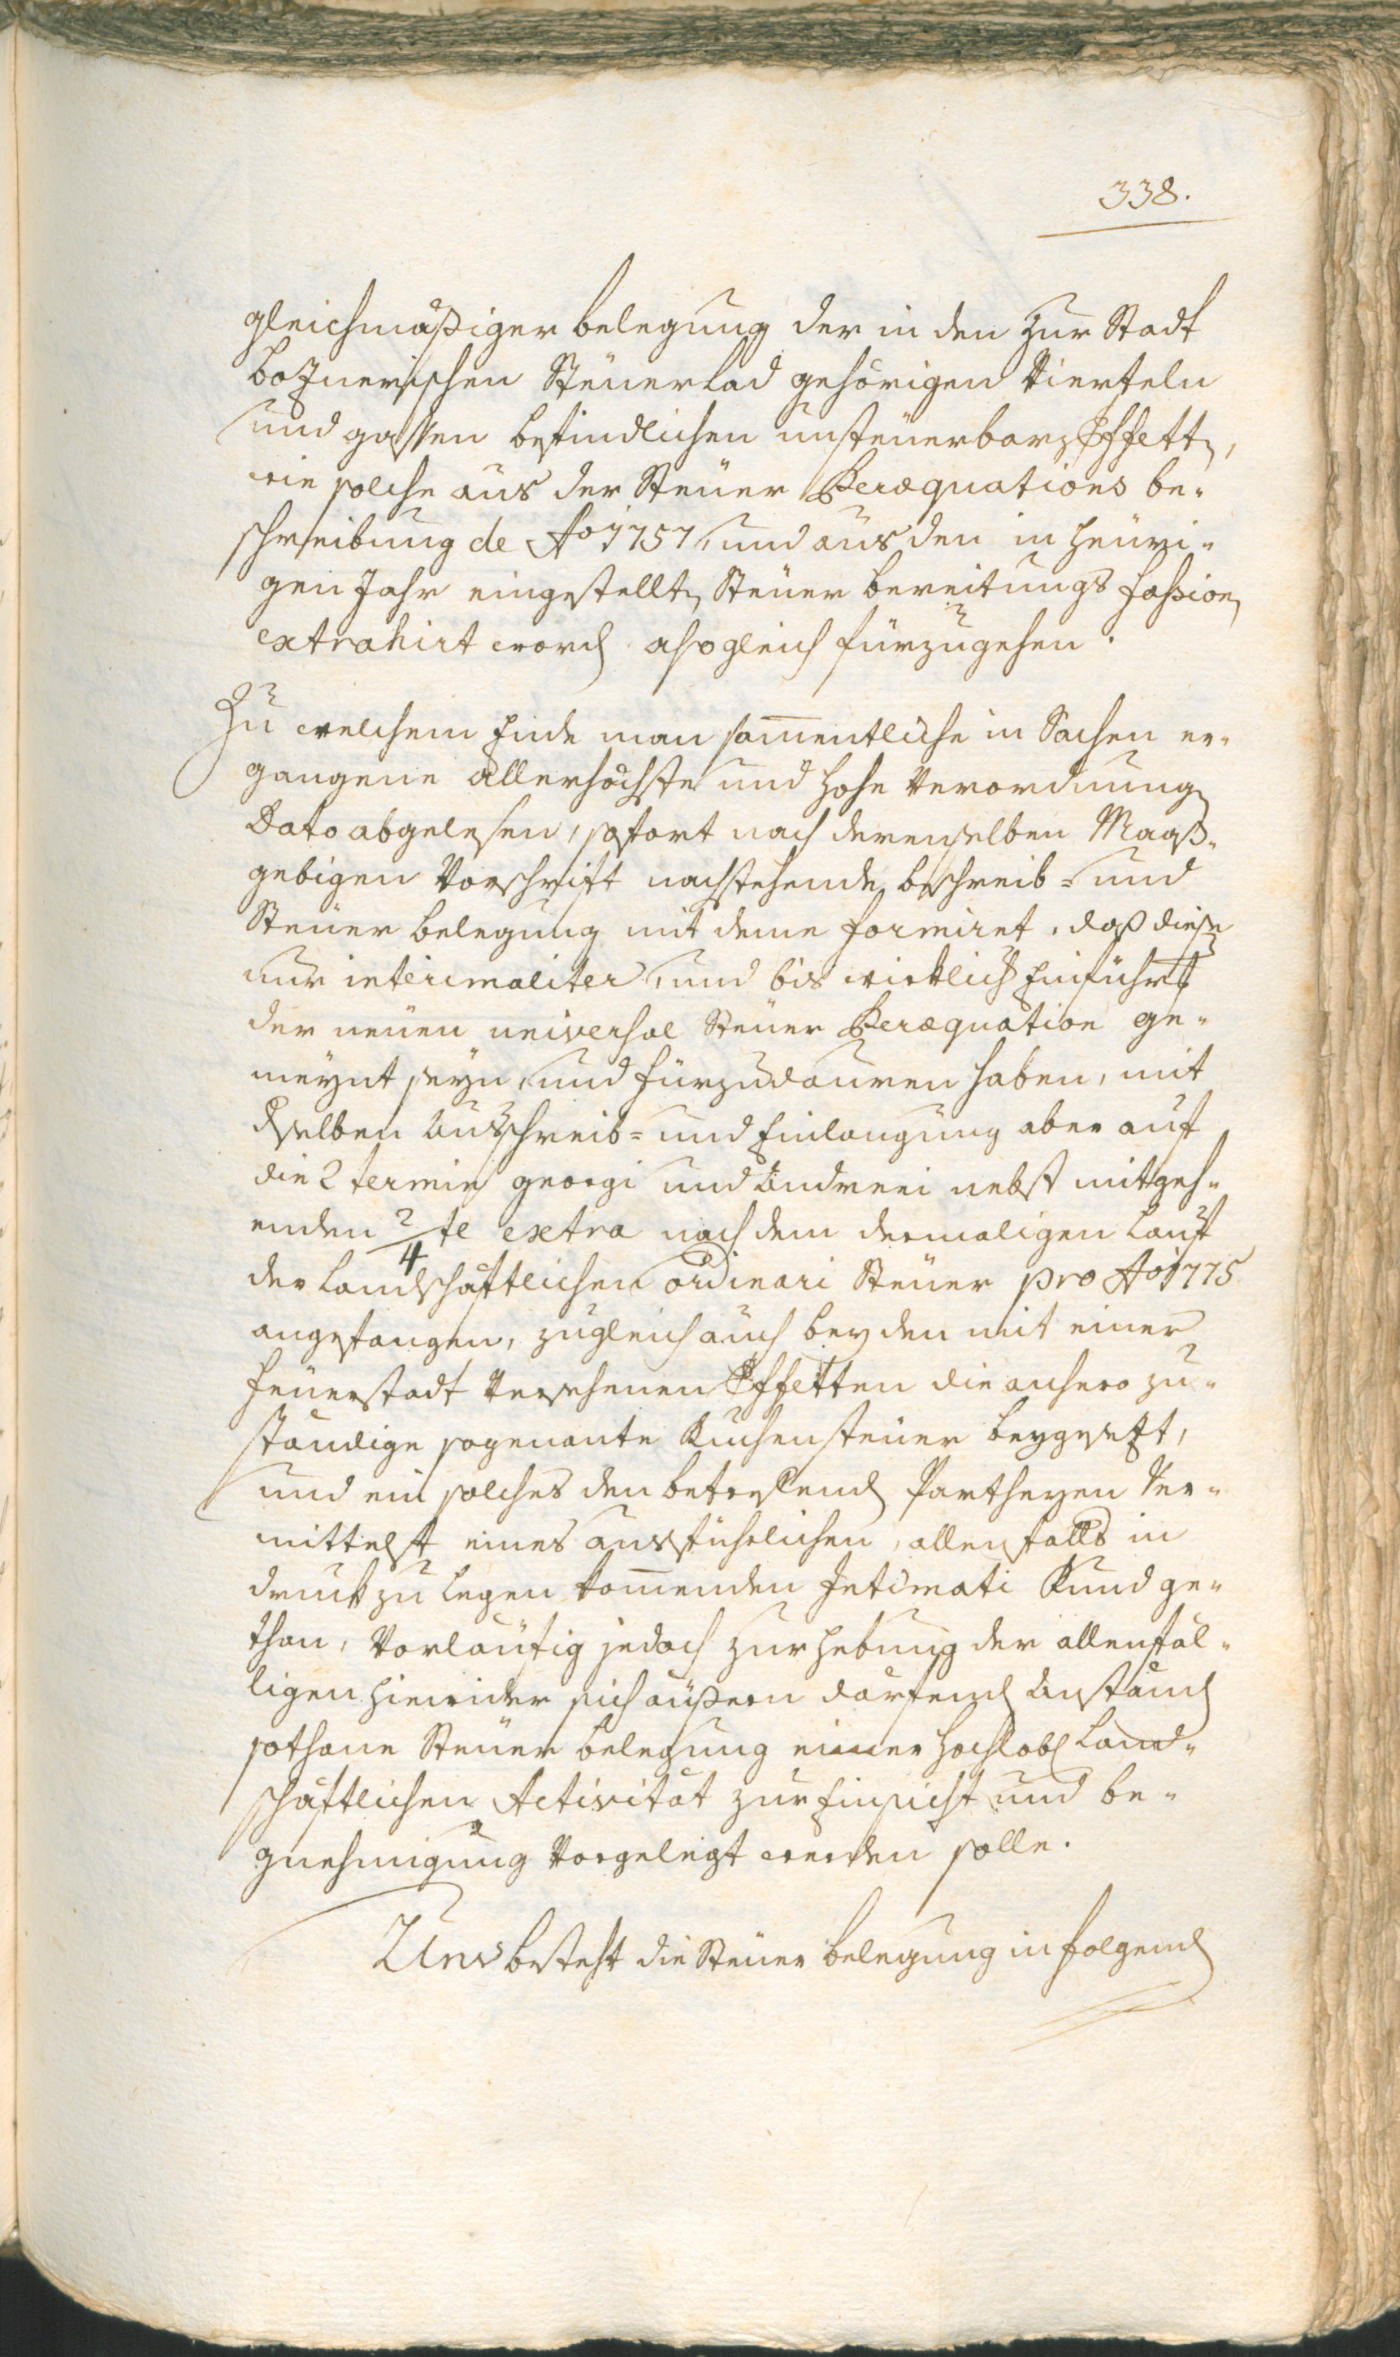 338.
gleichmäßiger belegung der in den zur Stadt
boznerischen Steuerlad gehörigen Vierteln
und gassen befindlichen unsteuerbarn Effettn,
wie solche aus der Steuer Peraequations be-
schreibung de Ao 1757, und aus den in heuri-
gen Jahr eingestelltn Steuer bereitungs fassionen
extrahirt word. also gleich fürzugehen.
Zu welchem Ende man sam̅entliche in Sachen er-
gangene allerhöchste und hohe Verordnungen
Dato abgelesen, sofort nach derenselben Maaß-
gebigen Vorschrift nachstehende beschreib- und
Steuer belegung mit deme formiret, daß diese
nur interimaliter, und bis wirklich Einführung
der neuen universal Steuer Peraequation ge-
meynt seyn, und fürzudauren haben, mit
dselben Ausschreib- und Einlangung aber auf
die 2 termin georgi und Andreei nebst mitgeh-
enden 2/4 te extra nach dem dermaligen Lauf
der Landschaftlichen ordinari Steuer pro Ao 1775
angefangen, zugleich auch bey den mit einer
Feuerstadt Versehenen Effetten die anhero zu-
ständige sogenante Kuchensteuer beygesezt,
und ein solches den betrefend Partheyen Ver-
mittelst eines ausführlichen, allenfalls in
druck zu legen kom̅enden Intimati Kund ge-
than, Vorläufig jedoch zur hebung der allenfäl-
ligen hierwider sich äußern darfend Anständ
sothane Steuer belegung einer hochlobl Land-
schäftlichen Activität zur Einsicht und be-
gnehmigung Vorgelegt werden solle.
Uns besteht die Steuer belegung in folgend